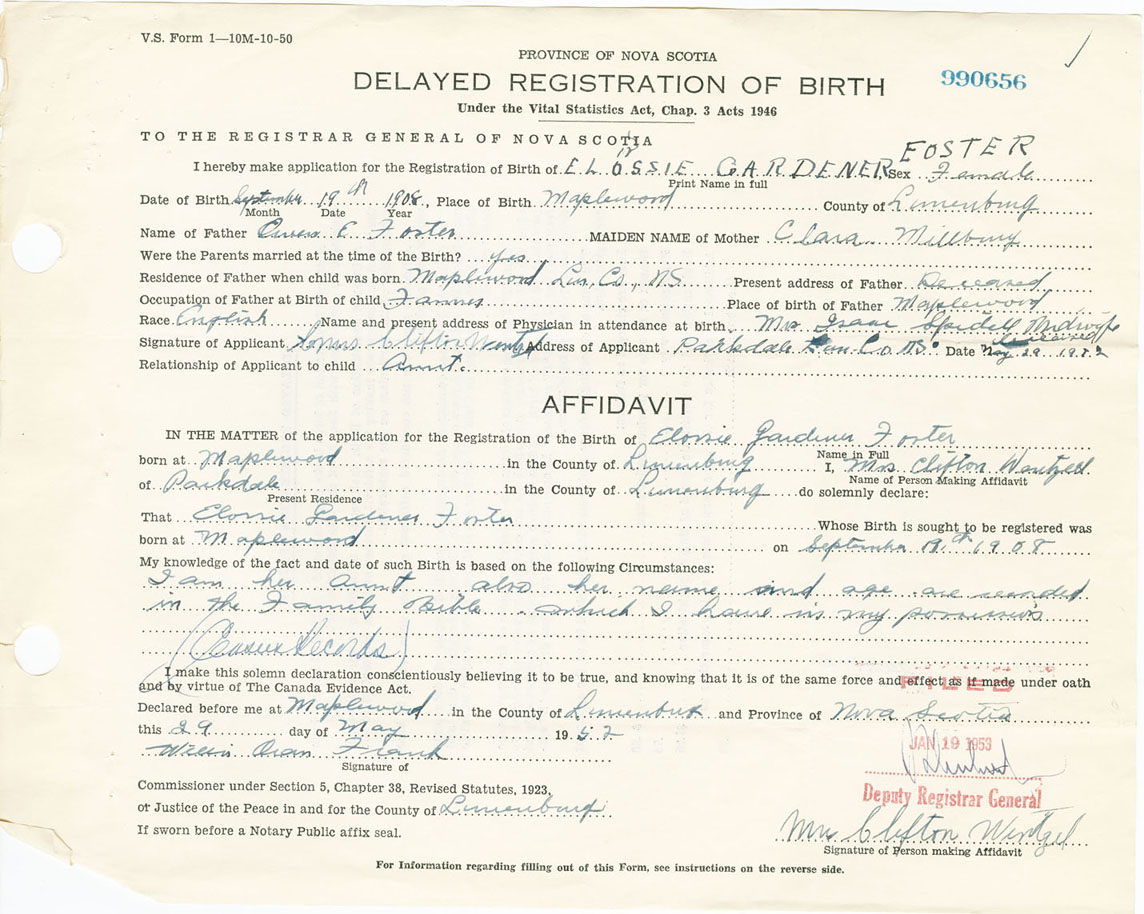 V.S. Form 1—10M-10-50
PROVINCE OF NOVA SCOTIA
DELAYED REGISTRATION OF BIRTH 990656
Under the Vital Statistics Act, Chap. 3 Acts 1946
TO THE REGISTRAR GENERAL OF NOVA SCOTIA
I hereby make application for the Registration of Birth of ELOSSIE GARDENER FOSTER Sex Female
Print Name in full
Date of Birth September 19th 1908, Place of Birth Maplewood County of Lunenburg
Month Date Year
Name of Father Owen E Foster MAIDEN NAME of Mother Clara Millbury
Were the Parents married at the time of the Birth? yes
Residence of Father when child was born Maplewood Lun. Co., NS Present address of Father Deceased
Occupation of Father at Birth of child Farmer Place of birth of Father Maplewood
Race English Name and present address of Physician in attendance at birth Mrs Isaac Spidell Midwife deceased
Signature of Applicant Clifton Wentzel Address of Applicant Parkdale Lun. Co. NS. Date May 29 1952
Relationship of Applicant to child Aunt.
AFFIDAVIT
IN THE MATTER of the application for the Registration of the Birth of Elossie Gardener Foster
Name in Full
born at Maplewood in the County of Lunenburg I, Mrs Clifton Wentzell
Name of Person Making Affidavit
of Parkdale in the County of Lunenburg do solemnly declare:
Present Residence
That Elossie Gardener Foster Whose Birth is sought to be registered was
born at Maplewood on September 19th 1908
My knowledge of the fact and date of such Birth is based on the following Circumstances:
I am her Aunt also her name and age are recorded
in the Family Bible which I have in my possession
(Census Records)
I make this solemn declaration conscientiously believing it to be true, and knowing that it is of the same force and effect as if made under oath
and by virtue of The Canada Evidence Act.
FILED
Declared before me at Maplewood in the County of Lunenburg and Province of Nova Scotia
this 29 day of May 1952
JAN 19 1953
Oran Frank
Signature of
Deputy Registrar General
Commissioner under Section 5, Chapter 38, Revised Statutes, 1923,
or Justice of the Peace in and for the County of Lunenburg
If sworn before a Notary Public affix seal.
Mrs Clifton Wentzel
Signature of Person making Affidavit
For Information regarding filling out of this Form, see instructions on the reverse side.